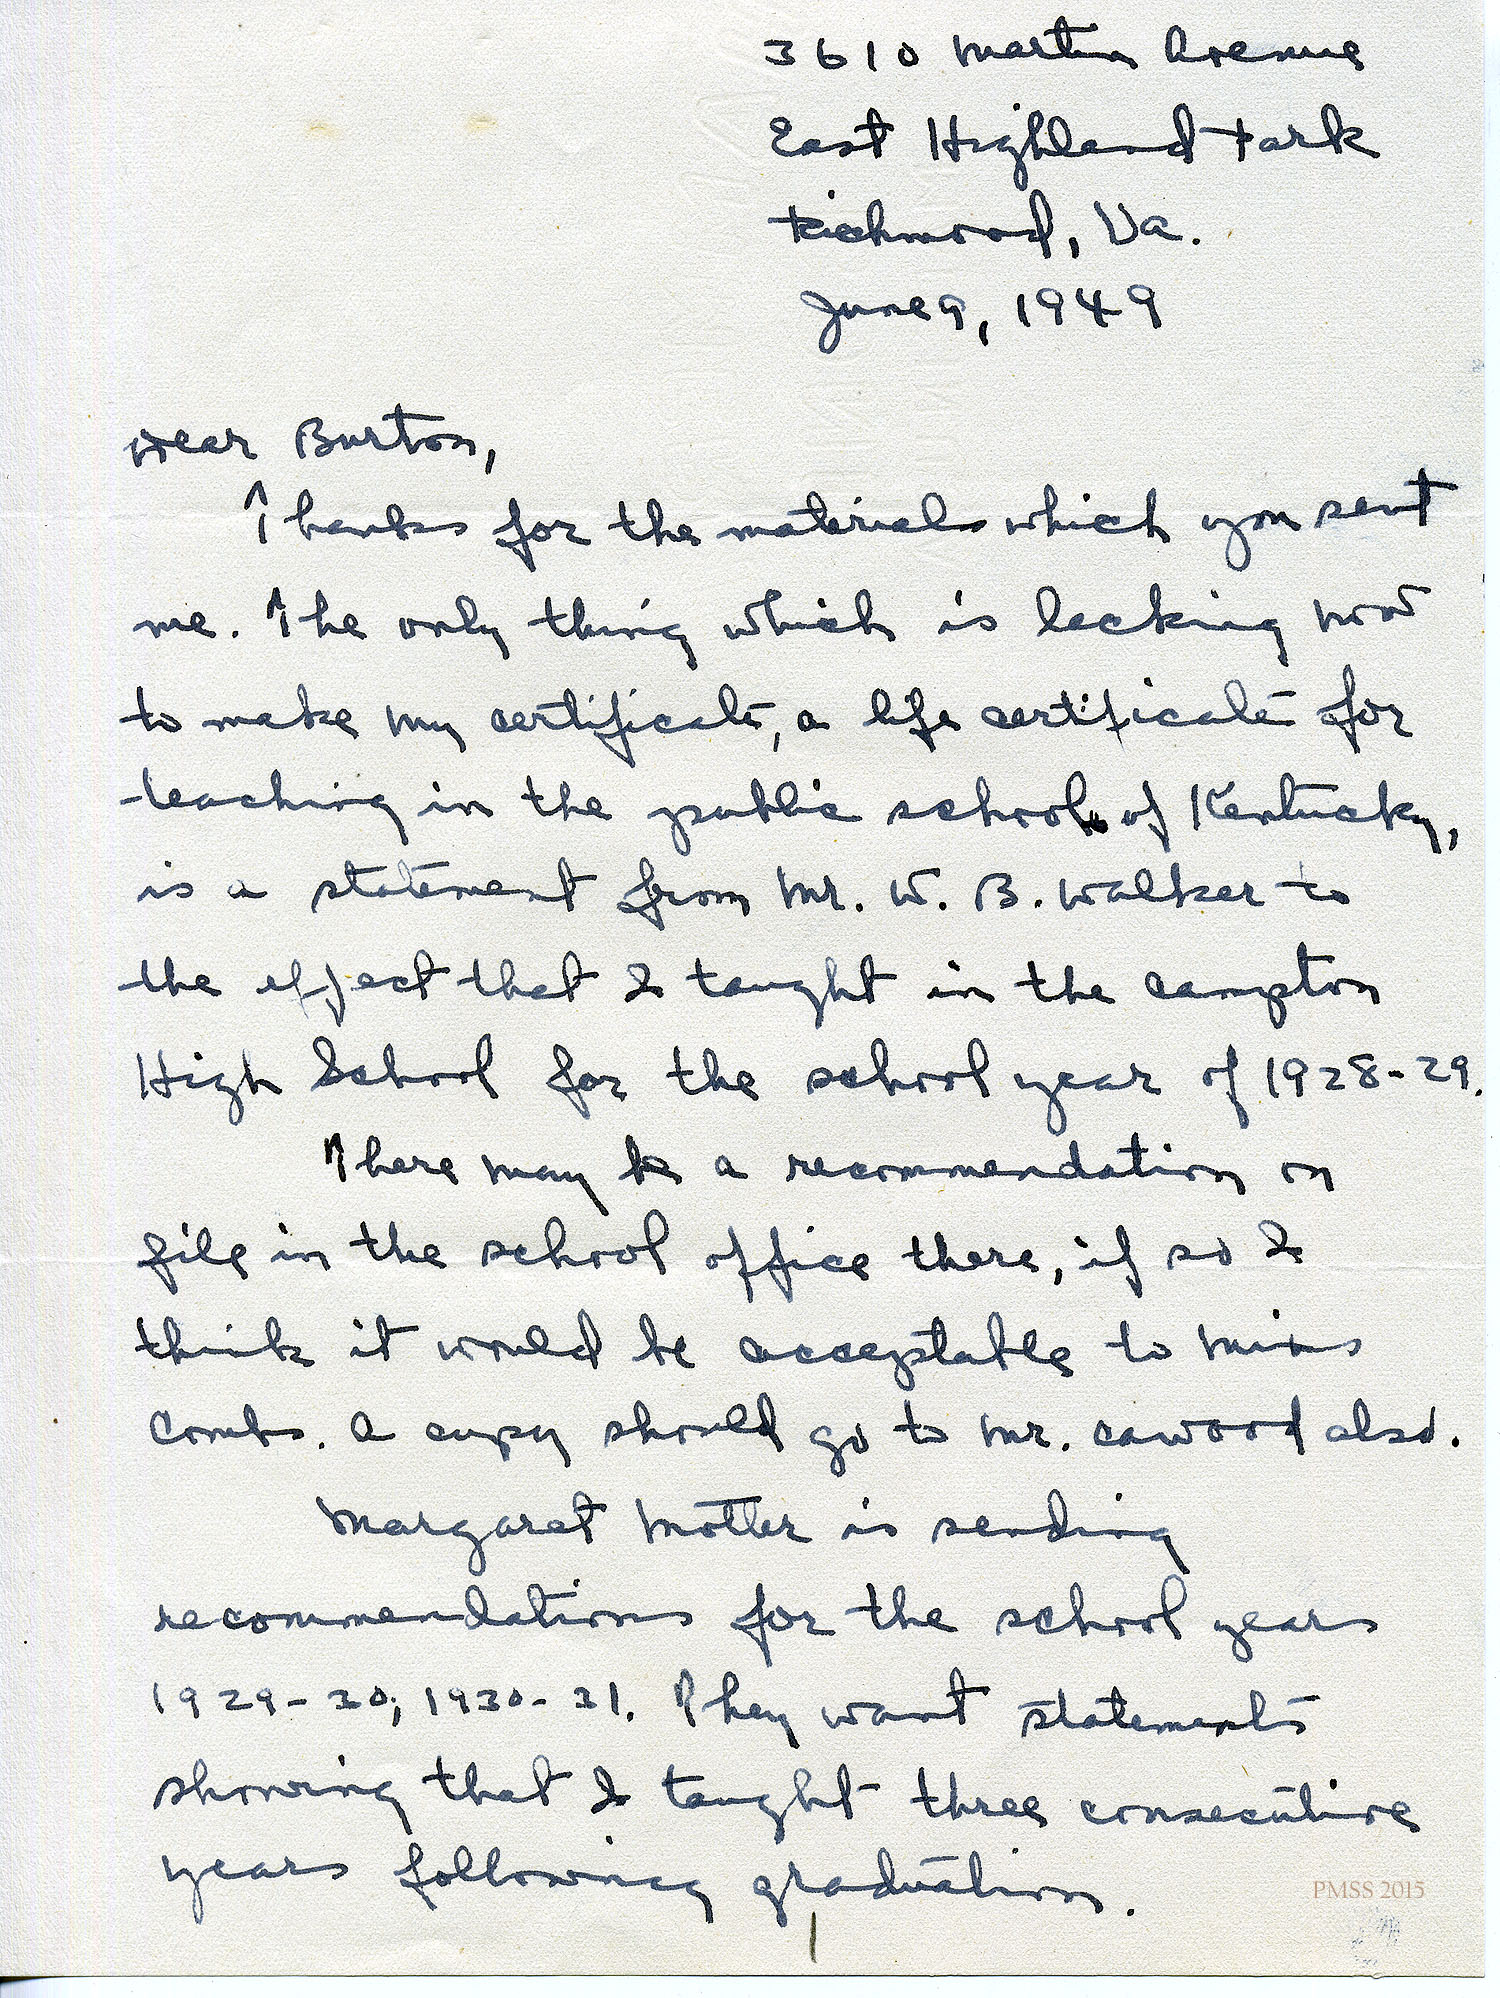 3610 Martin Avenue
East Highland Park
Richmond, Va.
June 9, 1949
Dear Burton,
Thanks for the materials which you sent
me. The only thing which is lacking now
to make my certificate, a life certificate for
teaching in the public schools of Kentucky,
is a statement from Mr. W. B. Walker to
the effect that I taught in the Campton
High School for the school year of 1928-29.
There may be a recommendation on
file in the school office there, if so I
think it would be acceptable to Miss
Combs. A copy should go to Mr. Cawood also.
Margaret Motter is sending
recommendations for the school years
1929-30; 1930-31. They want statements
showing that I taught three consecutive
years following graduation.
PMSS 2015